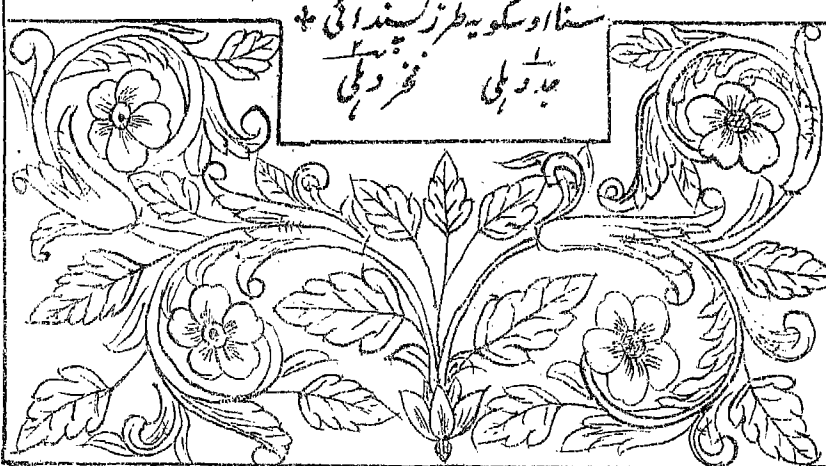 سنا اوسکو یہ طرز پسند آئی ٭
۱ ۲
دہلی فخر دہلی